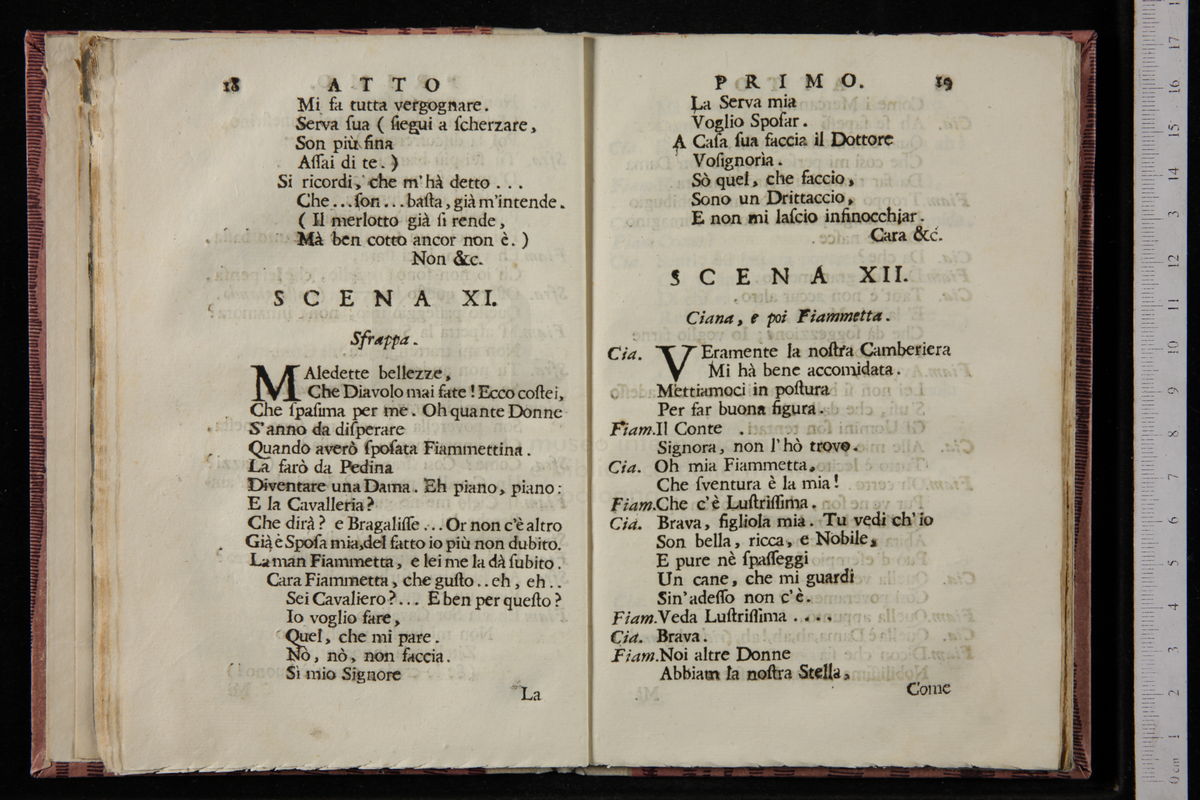 18 ATTO
Mi fa tutta vergognare.
Serva ſua ( ſiegui a ſcherzare,
Son più fina
Aſſai di te. )
Si ricordi, che m'hà detto . . .
Che...ſon...baſta, già m'intende.
( Il merlotto già ſi rende,
Mà ben cotto ancor non è. )
Non &c.
SCENA XI.
Sfrappa.
MAledette bellezze,
Che Diavolo mai fate! Ecco coſtei,
Che ſpaſima per me. Oh quante Donne
S'anno da diſperare
Quando averò ſpoſata Fiammettina.
La farò da Pedina
Diventare una Dama. Eh piano, piano:
E la Cavalleria?
Che dirà? e Bragaliſſe ... Or non c'è altro
Già è Spoſa mia,del fatto io più non dubito.
La man Fiammetta, e lei me la dà ſubito.
Cara Fiammetta, che guſto..eh, eh..
Sei Cavaliero?... E ben per queſto?
Io voglio fare,
Quel, che mi pare.
Nò, nò, non faccia.
Sì mio Signore
La
PRIMO. 19
La Serva mia
Voglio Spoſar.
A Caſa ſua faccia il Dottore
Voſignorìa.
Sò quel, che faccio,
Sono un Drittaccio,
E non mi laſcio infinocchiar.
Cara &c.
SCENA XII.
Ciana, e poi Fiammetta.
Cia. VEramente la noſtra Camberiera
Mi hà bene accomidata.
Mettiamoci in poſtura
Per far buona figura.
Fiam.Il Conte .
Signora, non l'hò trovo.
Cia. Oh mia Fiammetta,
Che ſventura è la mia!
Fiam.Che c'è Luſtriſſima.
Cia. Brava, figliola mia. Tu vedi ch'io
Son bella, ricca, e Nobile,
E pure nè ſpaſſeggi
Un cane, che mi guardi
Sin'adeſſo non c'è.
Fiam.Veda Luſtriſſima . . . .
Cia. Brava.
Fiam.Noi altre Donne
Abbiam la noſtra Stella,
Come